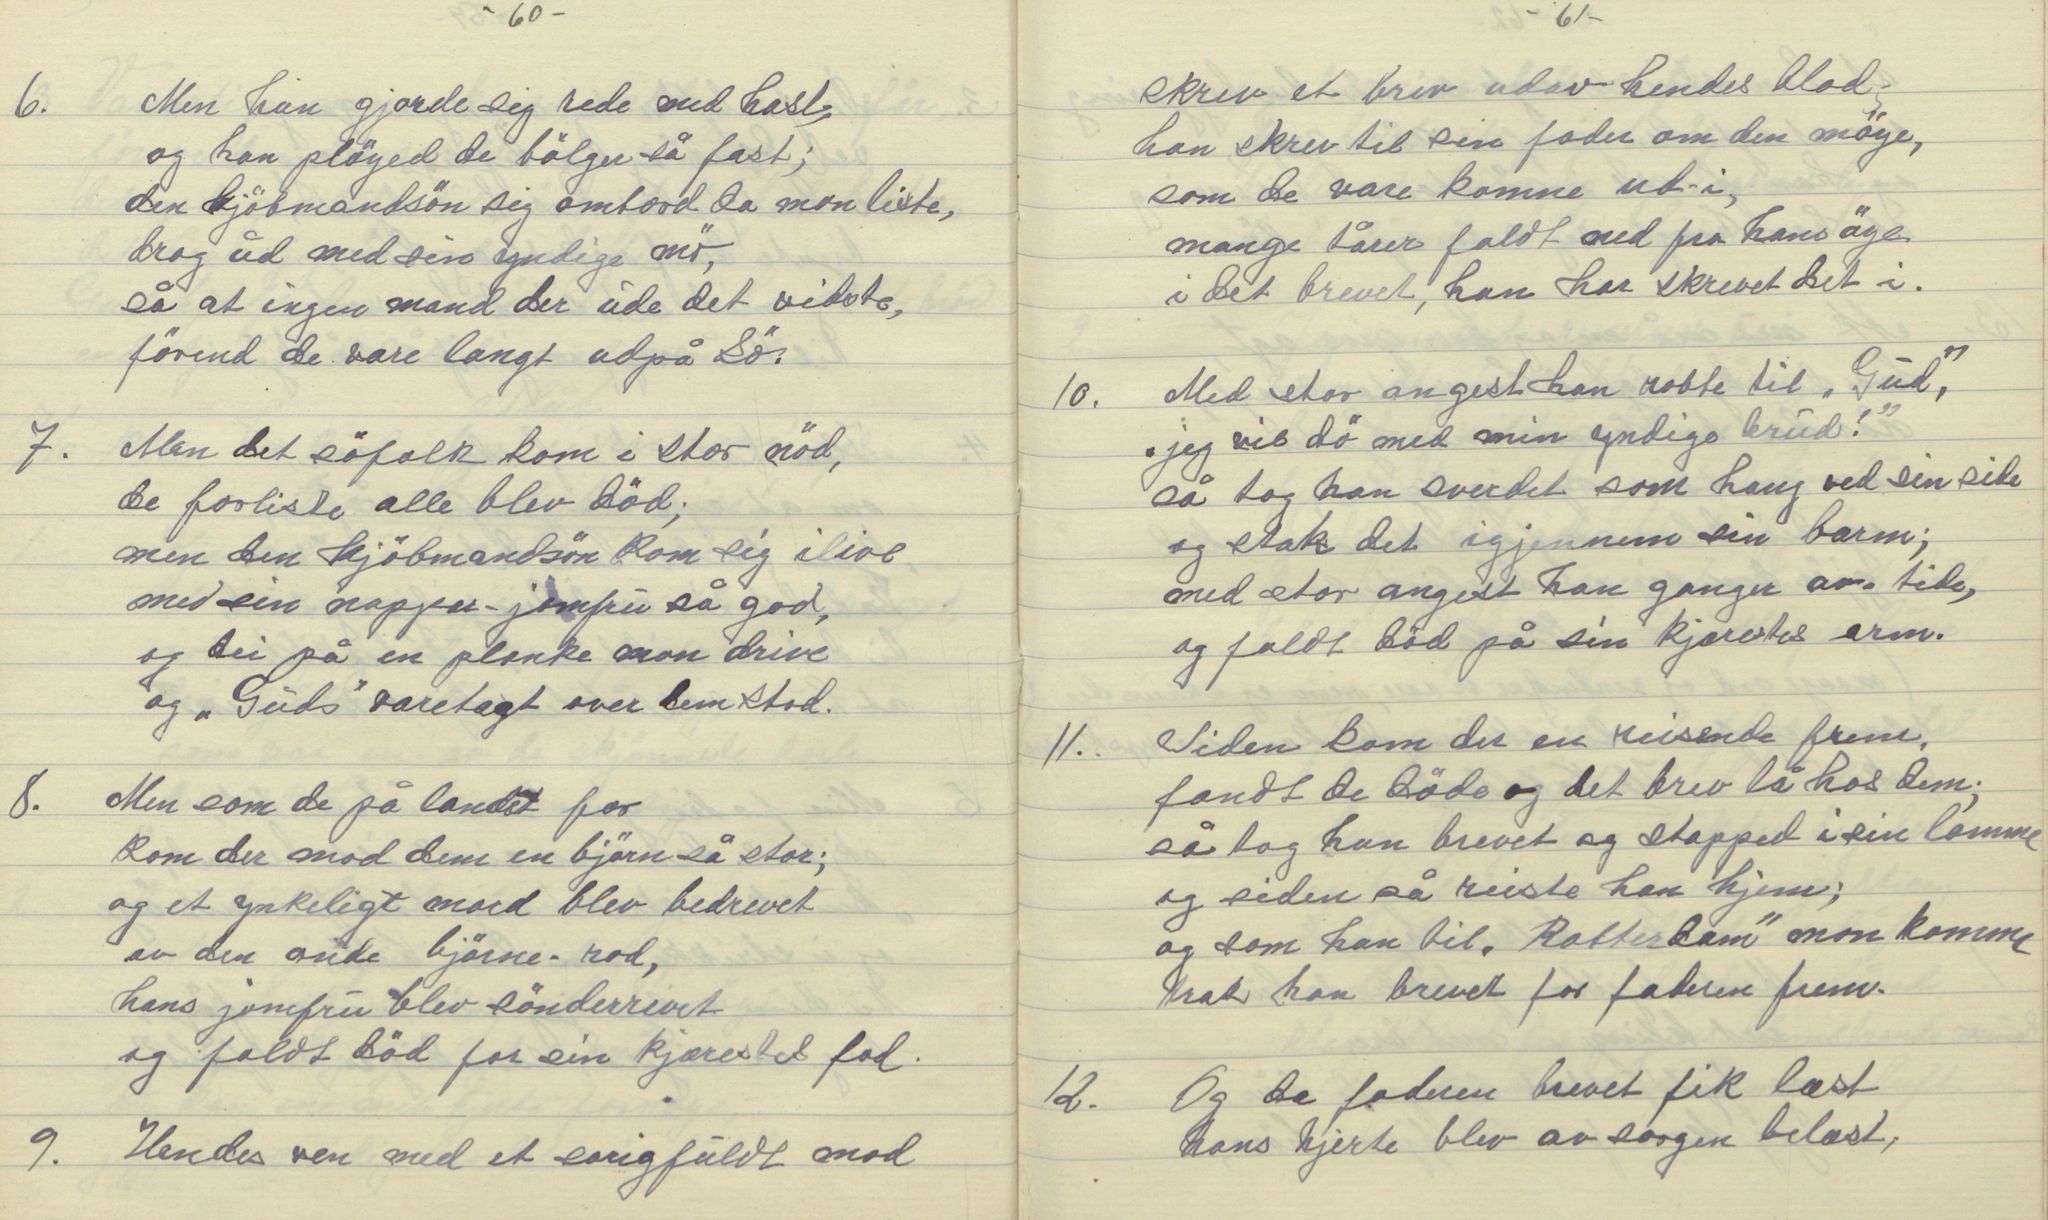 - 60 -
6. Men han gjorde sig rede med hast,
og han pløyed de bölger så fast;
den kjöbmandsön sig ombord da mon liste,
drog ud med sin yndige mö,
så at ingen mand der ude det vidste,
förend de vare langt udpå Sö.
7. Men det söfolk kom i stor nöd,
de forliste alle blev död;
men den kjöbmandsön kom sig ilive
med sin jomfru så god,
og dei på en planke mon drive
og „Guds" varetagt over dem stod.
8. Men som de på landet for
kom der mod dem en björn så stor;
og et ynkeligt mord blev bedrevet
av den onde björne-rod,
hans jomfru blev sönderrevet
og faldt död for sin kjærestes fod.
9. Hendes ven med et sorigfuldt mod
- 61 -
skrev et brev udav hendes blod;
han skrev til sin fader om den möye,
som de vare komne ud-i,
mange tårer faldt ned fra hans öye
i det brevet, han har skrevet det i.
10. Med stor angest han robte til „Gud",
„jeg vil dö med min yndige brud!"
så tog han sverdet som hang ved sin side
og stak det igjennem sin barm;
med stor angest han ganger av- tide,
og faldt död på sin kjærestes arm.
11. Siden kom der en reisende frem,
fandt de döde og det brev lå hos dem;
så tog han brevet og stapped i sin lomme
og siden så reiste han hjem;
og som han til „Rotterdam" mon komme
trak han brevet for faderen frem.
12. Og da faderen brevet fik læst
hans hjerte blev av sorgen belæst,